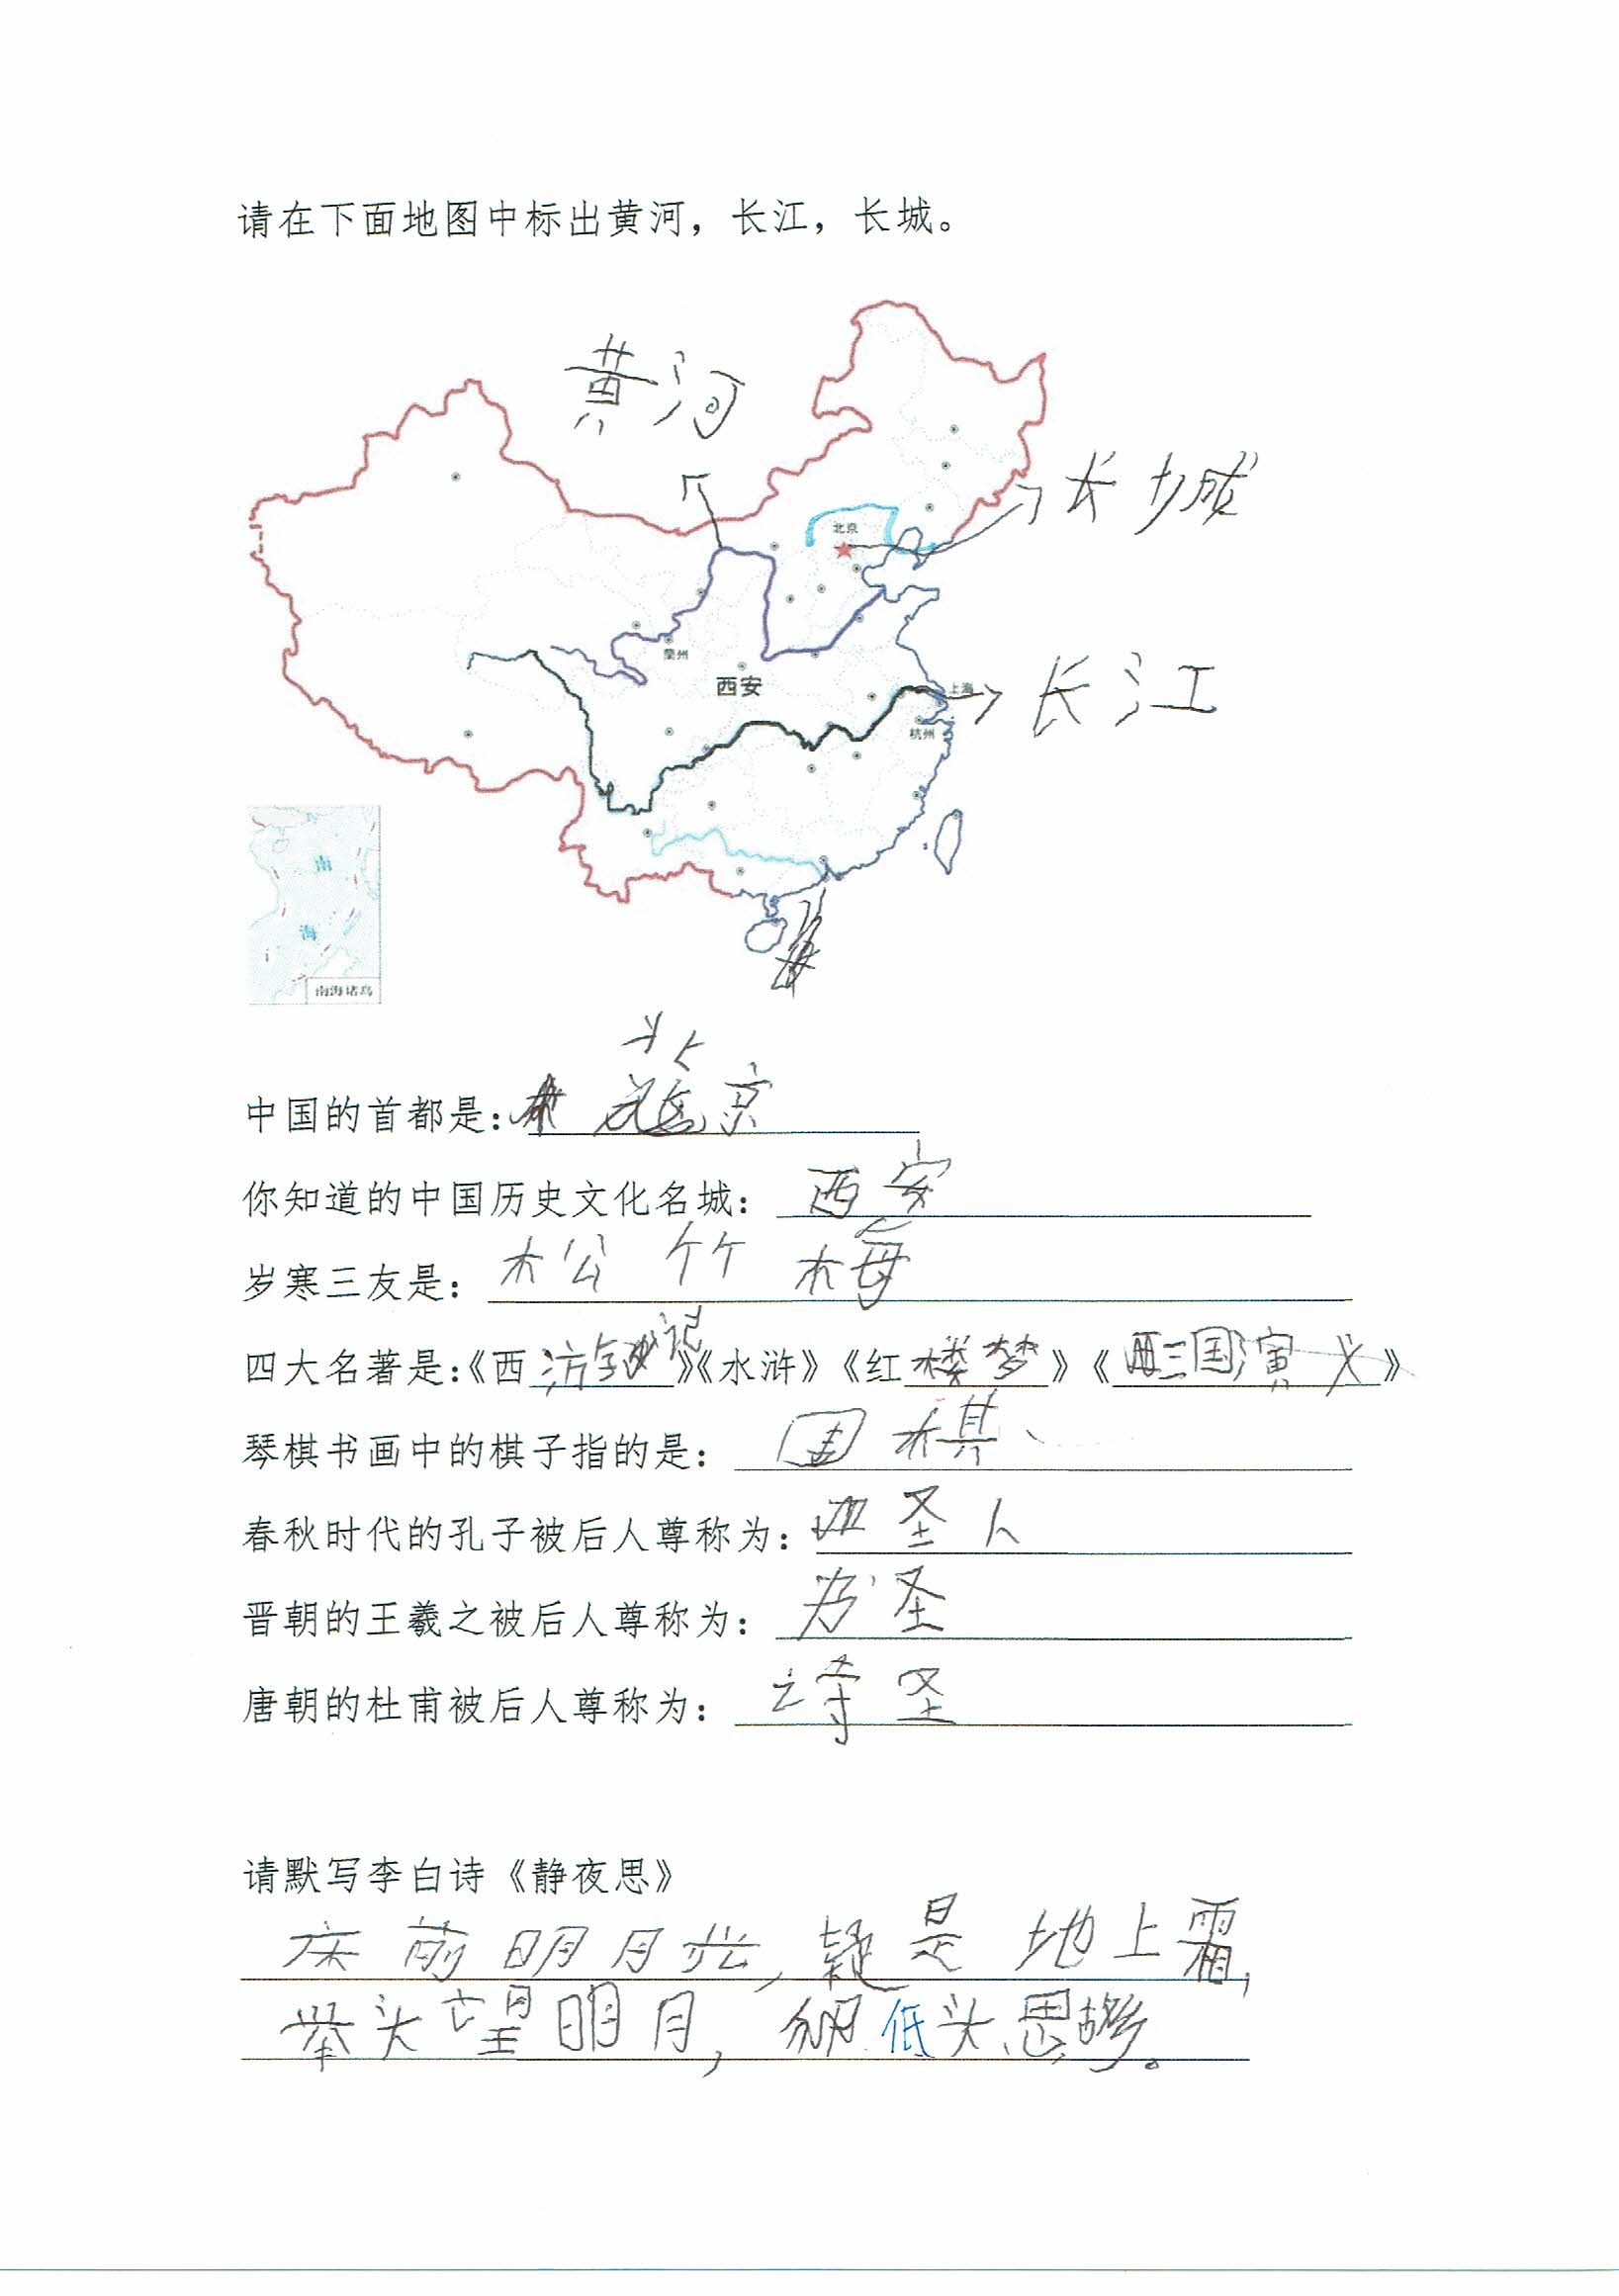 请在下面地图中标出黄河，长江，长城。
黄河
长城
北京
兰州
西安
上海
长江
杭州
南
海
南海诸岛
北
中国的首都是：京
你知道的中国历史文化名城：西安
岁寒三友是：松 竹 梅
四大名著是：《西游记》《水浒》《红楼梦》《三国演义》
琴棋书画中的棋子指的是：围棋
春秋时代的孔子被后人尊称为：圣人
晋朝的王羲之被后人尊称为：圣
唐朝的杜甫被后人尊称为：诗圣
请默写李白诗《静夜思》
床前明月光，疑是地上霜，
举头望明月，低头思故乡。